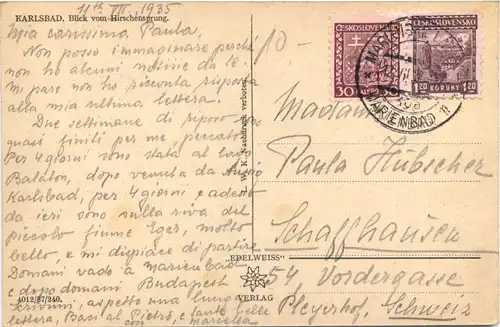 11th VII. 1935
KARLSBAD. Blick vom Hirschensprung.
Mia carissima Paula,
Non posso immaginare perché
non ho alcuni notizie da te.
Mi pare non ho ricevuta risposta
alla mia ultima lettera.
Due settimane di riposo sono
quasi finiti per me, peccato.
Per 4 giorni sono stata al Lago
Balaton, dopo venuta da
Karlsbad, per 4 giorni e adesso
da ieri sono sulla riva del
piccolo fiume Eger, molto
bello, e mi dispiace di partire.
Domani vado a Marienbad
e dopo domani Budapest
Scrivimi, aspetto una lunga
lettera, Baci al Pietro, e tante belle
cose Marcella
4012/87/240.
W. K. Nachdruck verboten.
"EDELWEISS"
VERLAG
ČESKOSLOVENSKO
30
ČESKOSLOVENSKO
1.20 KORUNY 1.20
MARIENBAD 1
Madame
Paula Hübscher
Schaffhausen
54 Vordergasse
Pleyerhof, Schweiz